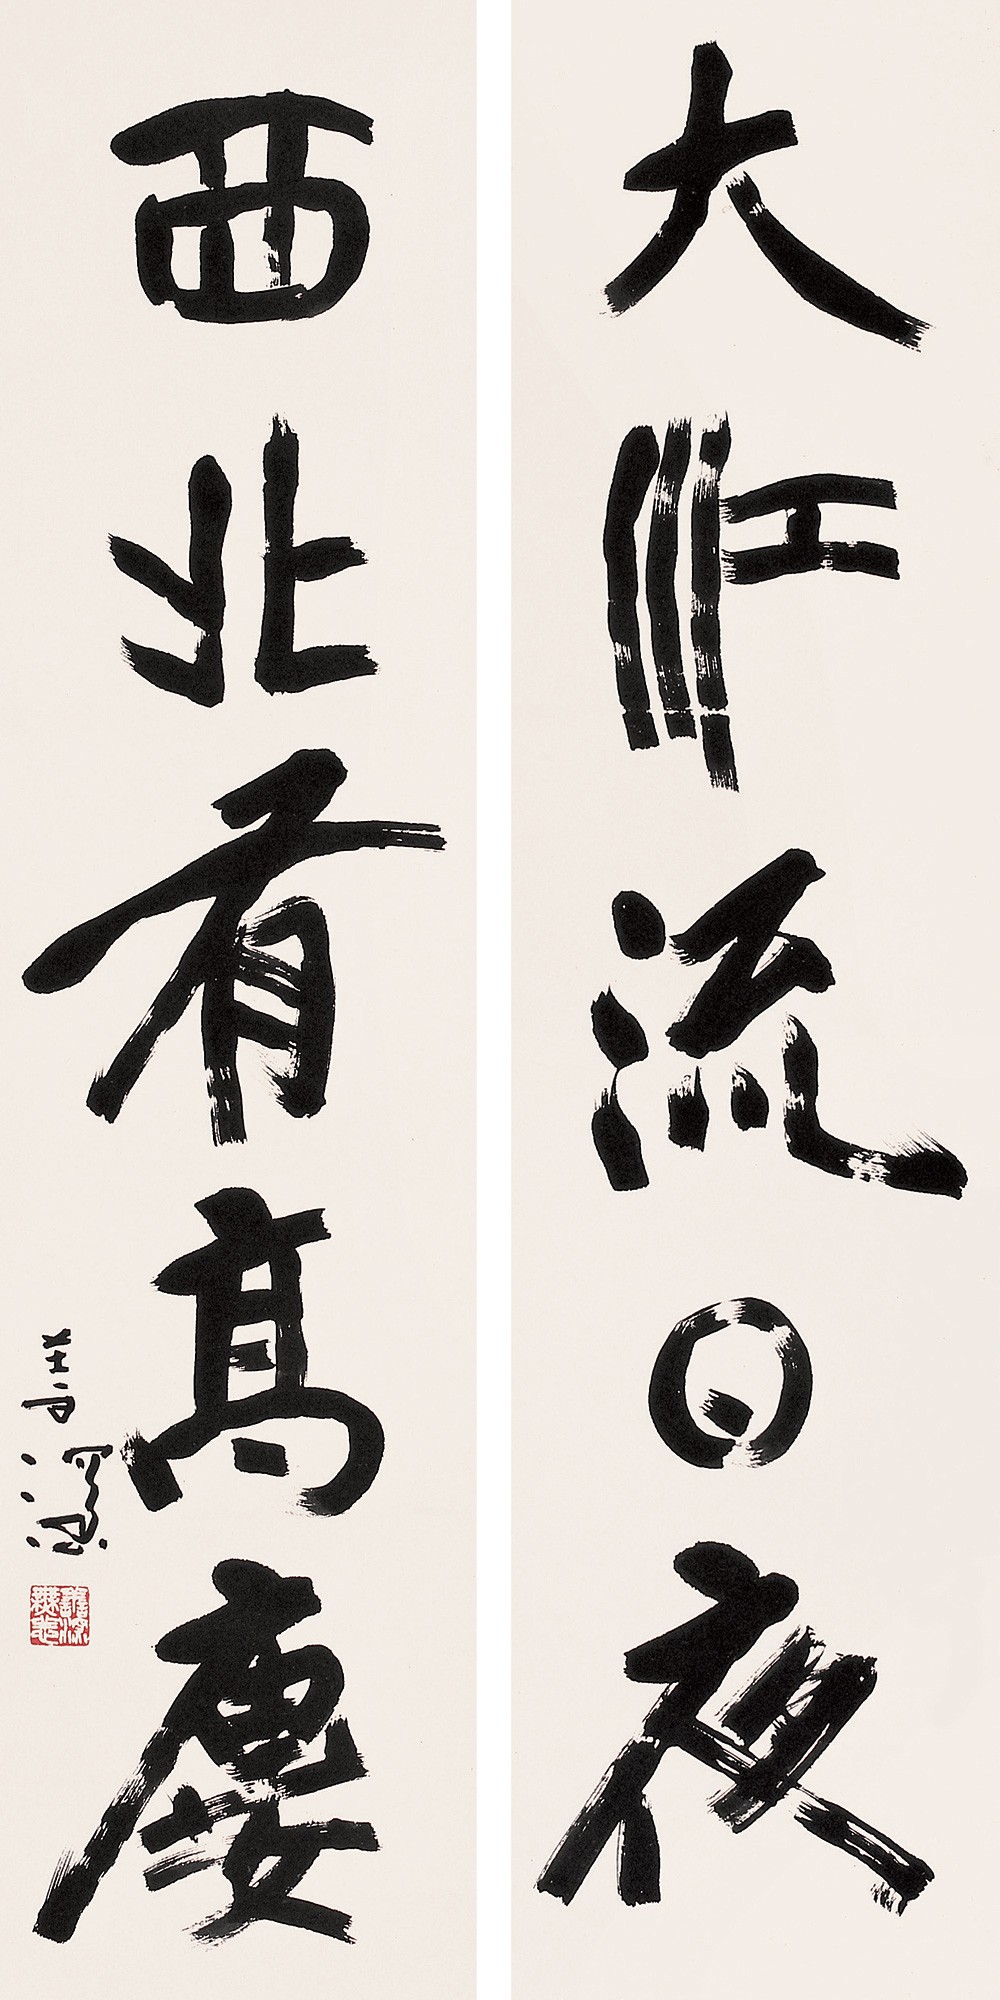 大江流日夜
西北有高廔